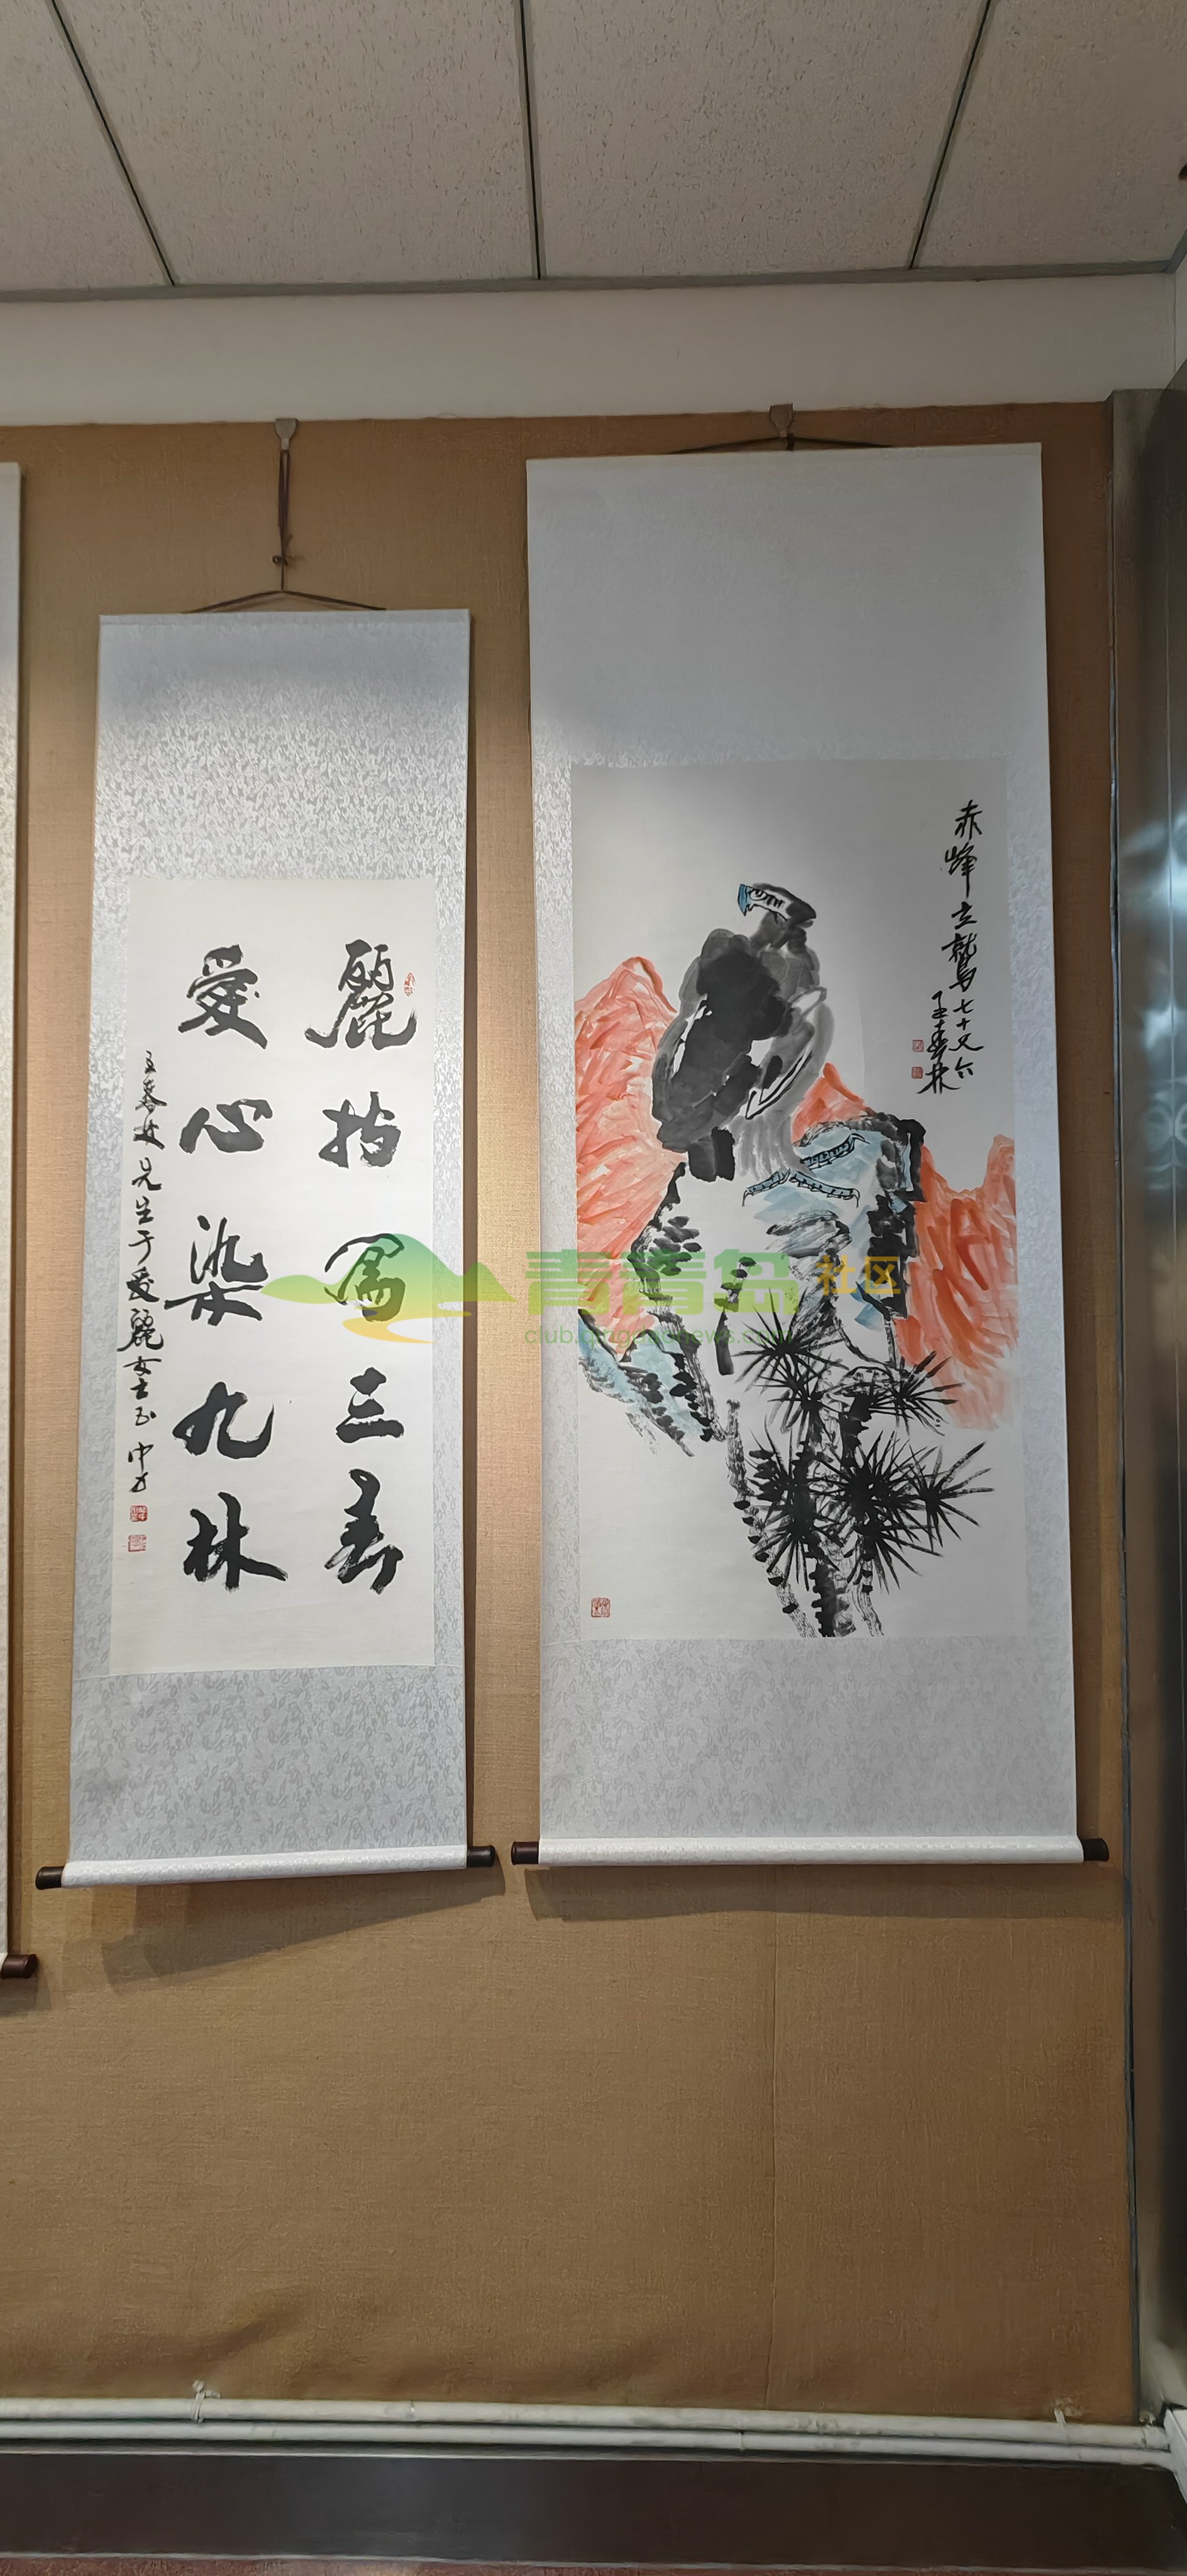 赤峰立鹫七十又六
王春林
麗指圖三春
愛心染九林
王春林先生于愛麗女士正 中才
青青岛社区
club.qingdaonews.com